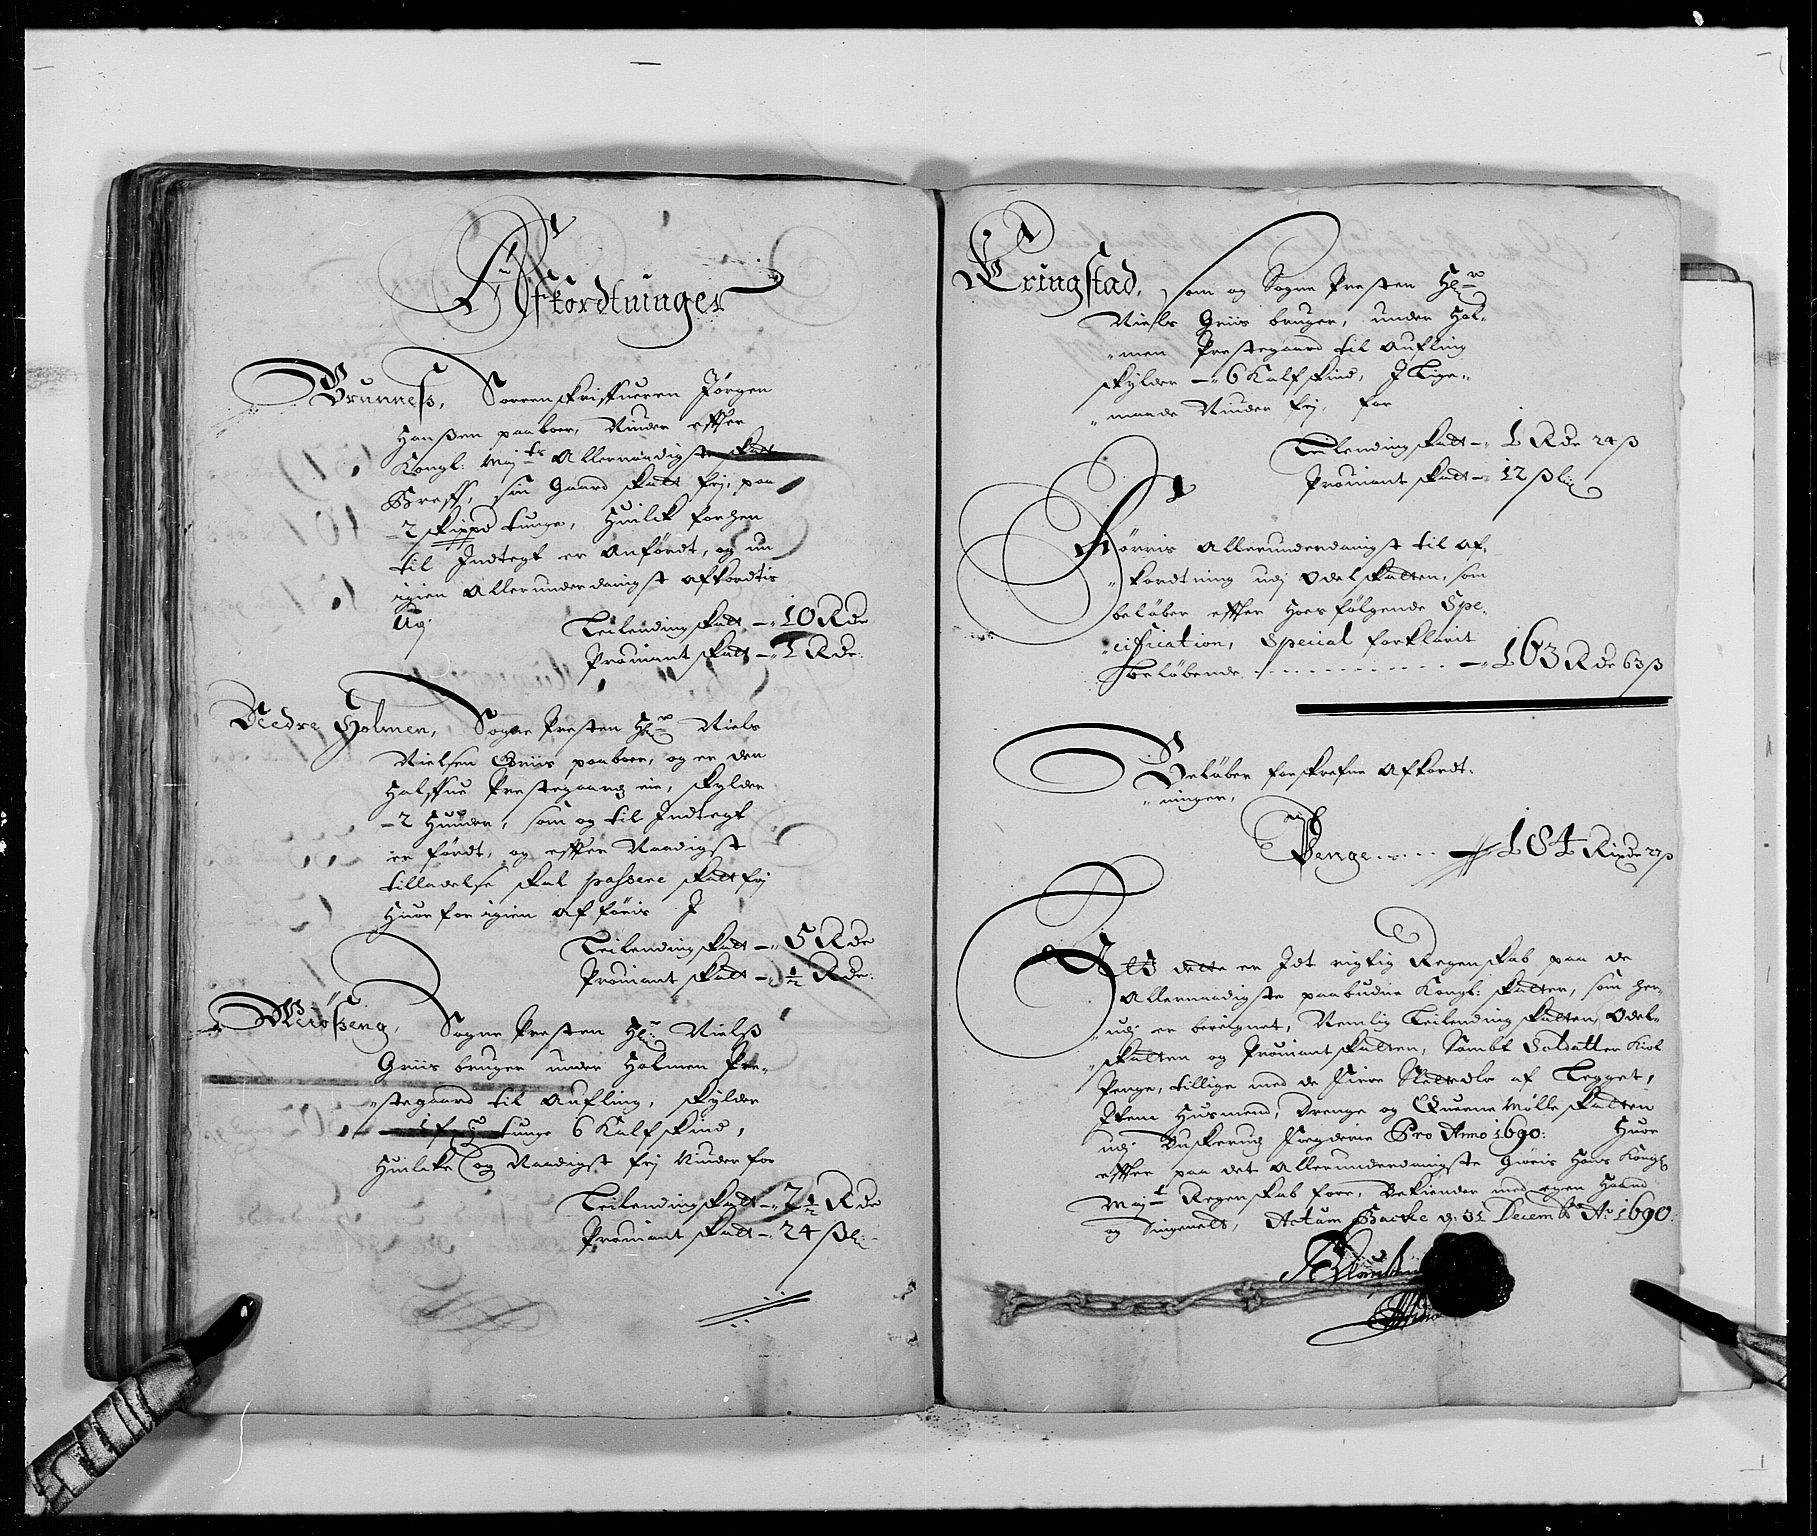 Affkordtninger
Brunness, Sorrenskriffueren Jørgen
Hanßen paaboer, Niuder effter
Kongl: May:ts Allernaadigste
Breff, sin Gaard skatt frj, paa
-2 skippd tunge, Huilk forhen
til Indtegt er Anførdt, og nu
igien Allerunderdanigst afkordtis
Leilending skatt — 10 Rdr
Proviant skatt — 1 Rdr:
Needre Holmen, Sogne Presten Hr: Niels
Nielsen Griis paaboer, og er den
Halffue Prestegaard eie, skylder
-2 Huuder, som og til Indtegt
er førdt, og effter Naadigst
tilladelse skal passere skatt frj
Huorfor igien af føris
Leilending skatt — 5 Rdr
Proviant skatt — ½ Rdr:
Miøßeng, Sogne Presten Hr: Nielß
Griis bruger under Holmen Pre-
stegaard til Aufling, skylder
tunge 6 Kalfskind,
Huilke og Naadigst frj Niuder for
Leilending skatt — 2½ Rdr
Proviant skatt — 24 ß
Eringstad, som og Sogne Presten Hr:
Niels Griis bruger, under Hol-
men Prestegaard til Aufling
skylder — 6 Kalfskind, I Lige-
maade Niuder frj, for
Leilending skatt — 1 Rdr 24 ß
Proviant skatt — 12 ß
Føreris Allerunderdanigst til Af-
kordtning udj Odelskatten, som
beløber effter Hoes følgende Spe-
cification, Special forklarit
beløbende — 163 Rdr 63 ß
Beløber forskrefne Afkordt-
ninger,
Penge — 184 Rixdr 27 ß
Att dette er Idt rigtig Regenskab paa de
Allernaadigste paabudne Kongl: skatter, som her-
udj er beregnet, Nemlig Leilending skatten, Odel-
skatten og Proviant skatten, Sambt Soldatter Kiol
Penge, tillige med de fiere af Legget,
Item Husmend, Drenge og Quern Mølle skatten
udj Buskerud Fogderie Pro Anno 1690: Huor
effter paa det Allerunderdanigste giøris Hans Kongl
May:t Regenskab fore, Bekiender med egen Haand
og Singenett, Actum Backe d: 31 Decemb: Ao 1690.